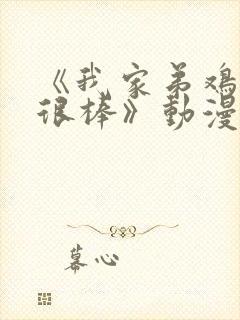 《我家弟鸡
很棒》動漫
幕心